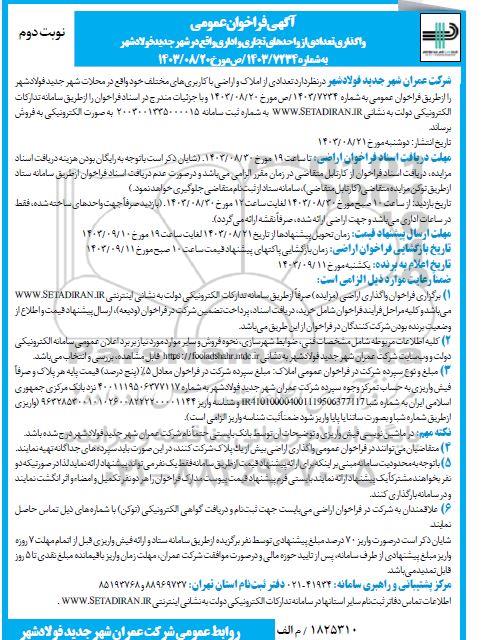 آگهی فراخوان عمومی
نوبت دوم
واگذاری تعدادی از واحدهای تجاری و اداری واقع در شهر جدید فولادشهر
به شماره ۱۴۰۳/۷۲۳۴/ص مورخ ۱۴۰۳/۰۸/۲۰
شرکت عمران شهر جدید فولادشهر در نظر دارد تعدادی از املاک و اراضی با کاربری‌های مختلف خود واقع در محلات شهر جدید فولادشهر
را از طریق فراخوان عمومی به شماره ۱۴۰۳/۷۲۳۴/ص مورخ ۱۴۰۳/۰۸/۲۰ و با جزئیات مندرج در اسناد فراخوان را از طریق سامانه تدارکات
الکترونیکی دولت به نشانی WWW.SETADIRAN.IR به شماره ثبت سامانه ۲۰۰۳۰۰۱۳۳۵۰۰۰۰۱۵ به صورت الکترونیکی به فروش
برساند.
تاریخ انتشار: دوشنبه مورخ ۱۴۰۳/۰۸/۲۱
مهلت دریافت اسناد فراخوان اراضی: تا ساعت ۱۹ مورخ ۱۴۰۳/۰۸/۳۰. (شایان ذکر است با توجه به رایگان بودن هزینه دریافت اسناد
مزایده، دریافت اسناد فراخوان از کارتابل متقاضی در زمان مقرر الزامی می‌باشد و در صورت عدم دریافت اسناد فراخوان از طریق سامانه ستاد
از طریق توکن مزایده متقاضی (کارتابل متقاضی)، سامانه ستاد از ثبت نام متقاضی جلوگیری خواهد نمود.)
تاریخ بازدید: از ساعت ۱۰ صبح مورخ ۱۴۰۳/۰۸/۳۰ لغایت ساعت ۱۲ مورخ ۱۴۰۳/۰۸/۳۰. (بازدید صرفاً جهت واحدهای ساخته شده، فقط
در ساعات اداری می‌باشد و جهت اراضی ارائه شده، صرفاً نقشه ارائه می‌گردد).
مهلت ارسال پیشنهاد قیمت: زمان تحویل پیشنهادها از تاریخ ۱۴۰۳/۰۸/۲۱ لغایت ساعت ۱۹ مورخ ۱۴۰۳/۰۹/۱۰
تاریخ بازگشایی فراخوان اراضی: زمان بازگشایی پاکتهای پیشنهاد قیمت ساعت ۱۰ صبح مورخ ۱۴۰۳/۰۹/۱۱
تاریخ اعلام به برنده: یکشنبه مورخ ۱۴۰۳/۰۹/۱۱
ضمنا رعایت موارد ذیل الزامی است:
۱) برگزاری فراخوان واگذاری اراضی (مزایده) صرفاً از طریق سامانه تدارکات الکترونیکی دولت به نشانی اینترنتی WWW.SETADIRAN.IR
می‌باشد و کلیه مراحل فرآیند فراخوان شامل خرید، دریافت اسناد، پرداخت تضمین شرکت در فراخوان (ودیعه)، ارسال پیشنهاد قیمت و اطلاع از
وضعیت برنده بودن شرکت کنندگان در فراخوان از این طریق می‌باشد.
۲) کلیه اطلاعات مربوطه شامل مشخصات فنی، ضوابط شهرسازی، نحوه فروش و سایر موارد مورد نیاز بر برد اعلان عمومی سامانه الکترونیکی
دولت و وب سایت شرکت عمران شهر جدید فولادشهر به نشانی https://fooladshahr.ntdc.ir قابل مشاهده، بررسی و انتخاب می‌باشد.
۳) مبلغ و نوع سپرده شرکت در فراخوان عمومی املاک: مبلغ سپرده شرکت در فراخوان معادل ۵٪ (پنج درصد) قیمت پایه هر پلاک و صرفاً
فیش واریزی به حساب تمرکز وجوه سپرده شرکت عمران شهر جدید فولادشهر به شماره ۴۰۰۱۱۱۹۵۰۶۳۷۷۱۱۷ نزد بانک مرکزی جمهوری
اسلامی ایران به شماره شبا IR410100004001119506377117 و شناسه واریز (واریزی
از طریق شماره شبا و بصورت ساتنا یا پایا واریز شود ضمناً ثبت شناسه واریز الزامی است).
نکته مهم: در ماشین نویسی فیش واریزی و توضیحات آن توسط بانک بایستی حتماً نام شرکت عمران شهر جدید فولادشهر درج شده باشد.
۴) متقاضیان می‌توانند در فراخوان عمومی واگذاری اراضی بیش از یک پلاک شرکت کنند، در این صورت باید سپرده‌های جداگانه تهیه نمایند.
۵) با توجه به محدودیت سامانه مبنی بر اینکه برای ارائه پیشنهاد قیمت از طریق سامانه فقط یک نفر می‌تواند پیشنهاد ارائه نماید لذا در صورتیکه دو
نفر بخواهند مشترکاً یک پیشنهاد ارائه نمایند، بایستی فرم پیشنهاد قیمت پیوست مدارک فراخوان را هر دو نفر تکمیل و امضاء و اثر انگشت نمایند
و در سامانه بارگذاری کنند.
۶) علاقمندان به شرکت در فراخوان عمومی می‌بایست جهت ثبت‌نام و دریافت گواهی الکترونیکی (توکن) با شماره های ذیل تماس حاصل
نمایند.
شایان ذکر است درصورت واریز ۷۰ درصد مبلغ پیشنهادی توسط نفر برگزیده از طریق سامانه ستاد و ارائه فیش واریزی قبل از اتمام مهلت ۷ روزه
واریز مبلغ پیشنهادی از طرف سامانه، پس از تایید حوزه مالی و درصورت موافقت شرکت عمران، مهلت زمان واریز باقیمانده مبلغ نقدی تا ۵ روز
قابل تمدید می‌باشد.
مرکز پشتیبانی و راهبری سامانه: ۴۱۹۳۴-۰۲۱ دفتر ثبت نام استان تهران: ۸۸۹۶۹۷۳۷ و ۸۵۱۹۳۷۶۸
اطلاعات تماس دفاتر ثبت‌نام سایر استانها در سامانه تدارکات الکترونیکی دولت به نشانی اینترنتی WWW.SETADIRAN.IR .
۱۸۲۵۳۱۰ / م الف
روابط عمومی شرکت عمران شهر جدید فولادشهر